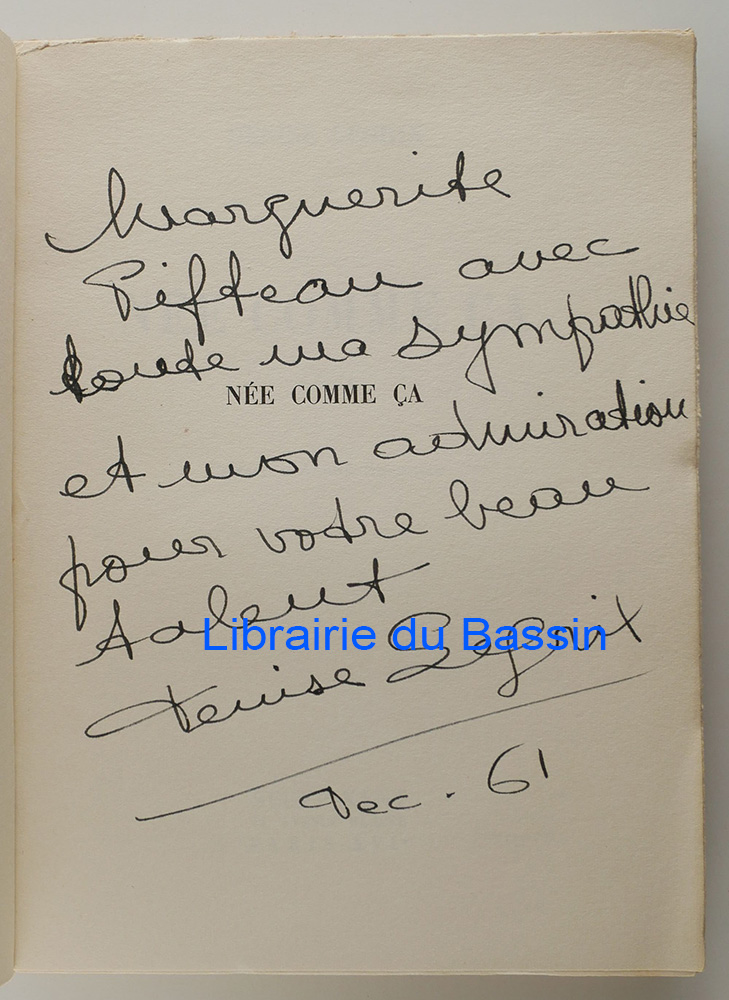 Marguerite
Pifteau avec
toute ma sympathie
NÉE COMME ÇA
et mon admiration
pour votre beau
talent
Librairie du Bassin
Denise Legrix
Dec. 61